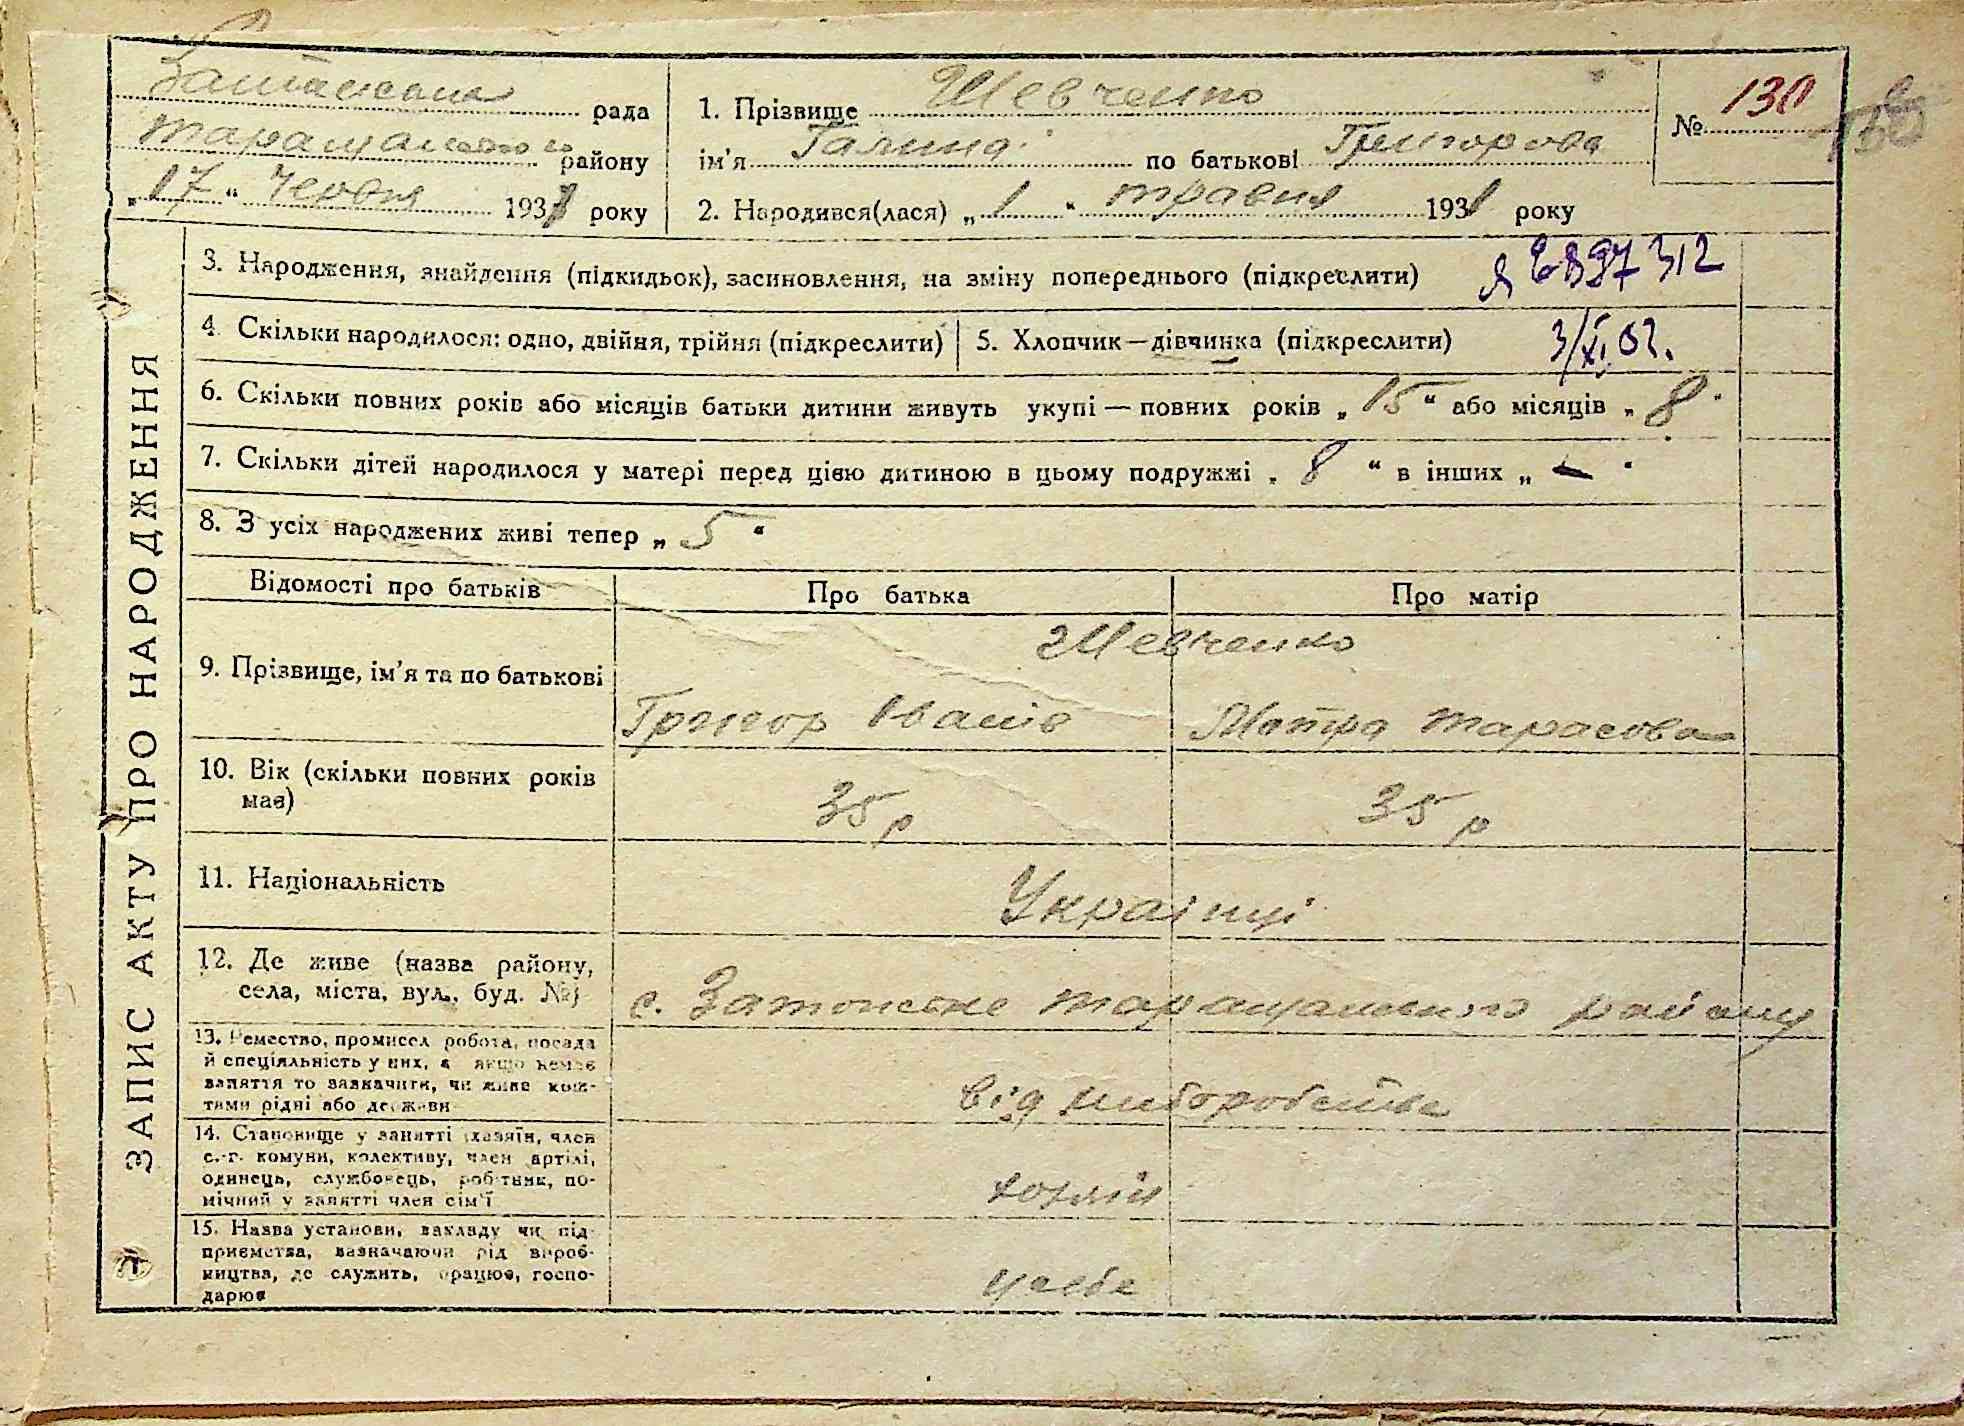 рада
Таращанського району
„17" Червня 1931 року
1. Прізвище Шевченко
ім'я Галина по батькові Григорова
№ 130
2. Народився(лася) „1" травня 1931 року
ЗАПИС АКТУ ПРО НАРОДЖЕННЯ
3. Народження, знайдення (підкидьок), засиновлення, на зміну попереднього (підкреслити)
4. Скільки народилося: одно, двійня, трійня (підкреслити)
5. Хлопчик—дівчинка (підкреслити)
6. Скільки повних років або місяців батьки дитини живуть укупі — повних років „15" або місяців „8"
7. Скільки дітей народилося у матері перед цією дитиною в цьому подружжі „8" в інших „-"
8. З усіх народжених живі тепер „5"
Відомості про батьків Про батька Про матір
9. Прізвище, ім'я та по батькові
Шевченко
Григор Іванів Мотря Тарасова
10. Вік (скільки повних років
має)
35 р 35 р
11. Національність
Українці
12. Де живе (назва району,
села, міста, вул., буд. №)
с. Затонське Таращанського району
13. Ремество, промисел робота, посада
й спеціяльність у них, а якщо немає
заняття то зазначити, чи живе кош-
тами рідні або держави
від хліборобства
14. Становище у занятті (хазяїн, член
с.-г. комуни, колективу, член артілі,
одинець, службовець, робітник, по-
мічний у занятті член сім'ї
хазяїн
15. Назва установи, закладу чи під-
приємства, зазначаючи рід вироб-
ництва, де служить, працює, госпо-
дарює
у себе